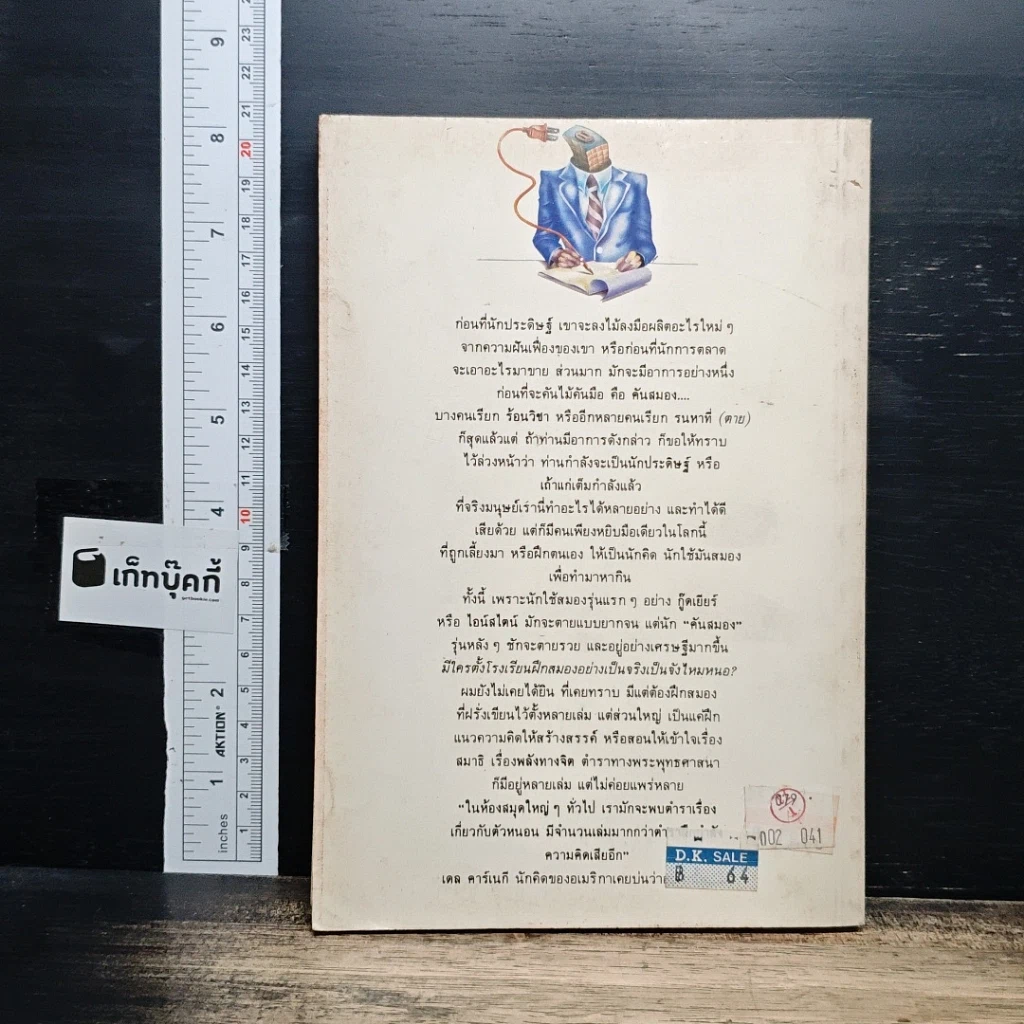 ก่อนที่นักประดิษฐ์ เขาจะลงไม้ลงมือผลิตอะไรใหม่ ๆ
จากความฝันเฟื่องของเขา หรือก่อนที่นักการตลาด
จะเอาอะไรมาขาย ส่วนมาก มักจะมีอาการอย่างหนึ่ง
ก่อนที่จะคันไม้คันมือ คือ คันสมอง....
บางคนเรียก ร้อนวิชา หรืออีกหลายคนเรียก รนหาที่ (ตาย)
ก็สุดแล้วแต่ ถ้าท่านมีอาการดังกล่าว ก็ขอให้ทราบ
ไว้ล่วงหน้าว่า ท่านกำลังจะเป็นนักประดิษฐ์ หรือ
เถ้าแก่เต็มกำลังแล้ว
ที่จริงมนุษย์เรานี่ทำอะไรได้หลายอย่าง และทำได้ดี
เสียด้วย แต่ก็มีคนเพียงหยิบมือเดียวในโลกนี้
ที่ถูกเลี้ยงมา หรือฝึกตนเอง ให้เป็นนักคิด นักใช้มันสมอง
เพื่อทำมาหากิน
ทั้งนี้ เพราะนักใช้สมองรุ่นแรก ๆ อย่าง กู๊ดเยียร์
หรือ ไอน์สไตน์ มักจะตายแบบยากจน แต่นัก "คันสมอง"
รุ่นหลัง ๆ ชักจะตายรวย และอยู่อย่างเศรษฐีมากขึ้น
มีใครตั้งโรงเรียนฝึกสมองอย่างเป็นจริงเป็นจังไหมหนอ?
ผมยังไม่เคยได้ยิน ที่เคยทราบ มีแต่ต้องฝึกสมอง
ที่ฝรั่งเขียนไว้ตั้งหลายเล่ม แต่ส่วนใหญ่ เป็นแค่ฝึก
แนวความคิดให้สร้างสรรค์ หรือสอนให้เข้าใจเรื่อง
สมาธิ เรื่องพลังทางจิต ตำราทางพระพุทธศาสนา
ก็มีอยู่หลายเล่ม แต่ไม่ค่อยแพร่หลาย
"ในห้องสมุดใหญ่ ๆ ทั่วไป เรามักจะพบตำราเรื่อง
เกี่ยวกับตัวหนอน มีจำนวนเล่มมากกว่า
ความคิดเสียอีก"
เดล คาร์เนกี นักคิดของอเมริกาเคยบ่นว่า
002 041
D.K. SALE
฿ 64
เก็ทบุ๊คกี้
AKTION
inches
1
2
4
5
6
7
8
9
1
2
3
4
5
6
7
8
9
10
11
12
13
14
15
16
17
18
19
20
21
22
23